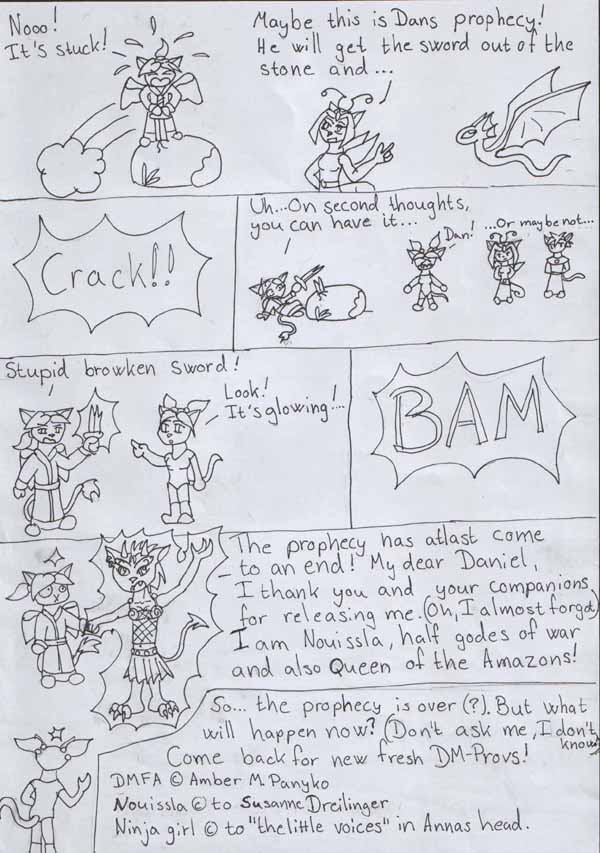 Nooo!
It's stuck!
Maybe this is Dans prophecy!
He will get the sword out of the
stone and...
Crack!!
Uh...On second thoughts,
you can have it...
Dan!
...Or maybe not...
Stupid browken sword!
Look!
It's glowing!...
BAM
The prophecy has atlast come
to an end! My dear Daniel,
I thank you and your companions
for releasing me. (Oh, I almost forgot)
I am Nouissla, half godes of war
and also Queen of the Amazons!
So... the prophecy is over (?). But what
will happen now? (Don't ask me, I don't
know)
Come back for new fresh DM-Provs!
DMFA © Amber M. Panyko
Nouissla © to Susanne Dreilinger
Ninja girl © to "the little voices" in Annas head.